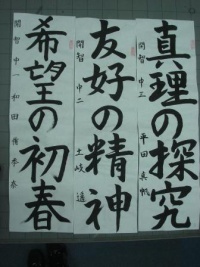 真理の探究
開智 中三 平田 真帆
友好の精神
開智 中二 土岐 遥
希望の初春
開智 中一 和田